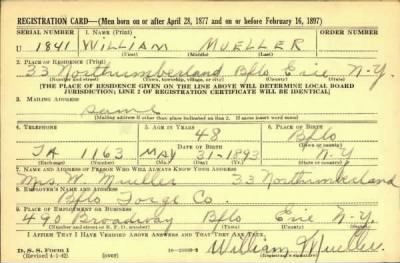 REGISTRATION CARD—(Men born on or after April 28, 1877 and on or before February 16, 1897)
SERIAL NUMBER 1. NAME (Print) ORDER NUMBER
U 1841 WILLIAM MUELLER
(First) (Middle) (Last)
2. PLACE OF RESIDENCE (Print)
33 Northumberland Bflo Erie N.Y.
(Number and street) (Town, township, village, or city) (County) (State)
[THE PLACE OF RESIDENCE GIVEN ON THE LINE ABOVE WILL DETERMINE LOCAL BOARD
JURISDICTION; LINE 2 OF REGISTRATION CERTIFICATE WILL BE IDENTICAL]
3. MAILING ADDRESS
Same
(Mailing address if other than place indicated on line 2. If same insert word same)
4. TELEPHONE 5. AGE IN YEARS 6. PLACE OF BIRTH
48 Bflo
DATE OF BIRTH (Town or county)
1163 MAY 31-1893 N.Y.
(Exchange) (Number) (Mo.) (Day) (Yr.) (State or country)
7. NAME AND ADDRESS OF PERSON WHO WILL ALWAYS KNOW YOUR ADDRESS
Mrs. W. Mueller 33 Northumberland
8. EMPLOYER'S NAME AND ADDRESS
Bflo Forge Co.
9. PLACE OF EMPLOYMENT OR BUSINESS
490 Broadway Bflo Erie N.Y.
(Number and street or R. F. D. number) (Town) (County) (State)
I AFFIRM THAT I HAVE VERIFIED ABOVE ANSWERS AND THAT THEY ARE TRUE.
D. S. S. FORM 1
(Revised 4-1-42) (over) William Mueller
(Registrant's signature)